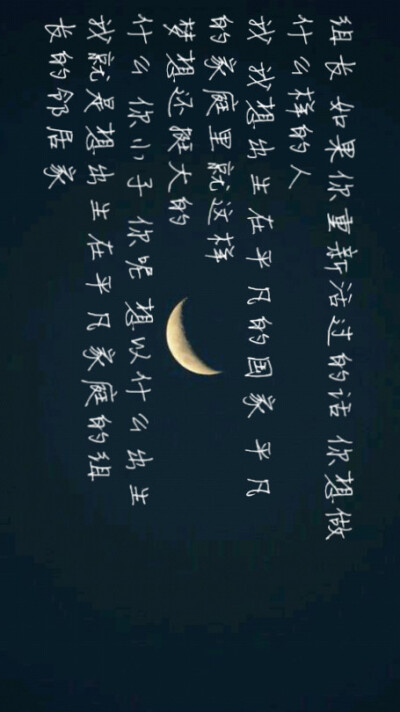 组长 如果你重新活过的话 你想做
什么样的人
我 我想出生在平凡的国家 平凡
的家庭里就这样
梦想还挺大的
什么 你小子 你呢 想以什么出生
我就是想出生在平凡家庭的组
长的邻居家